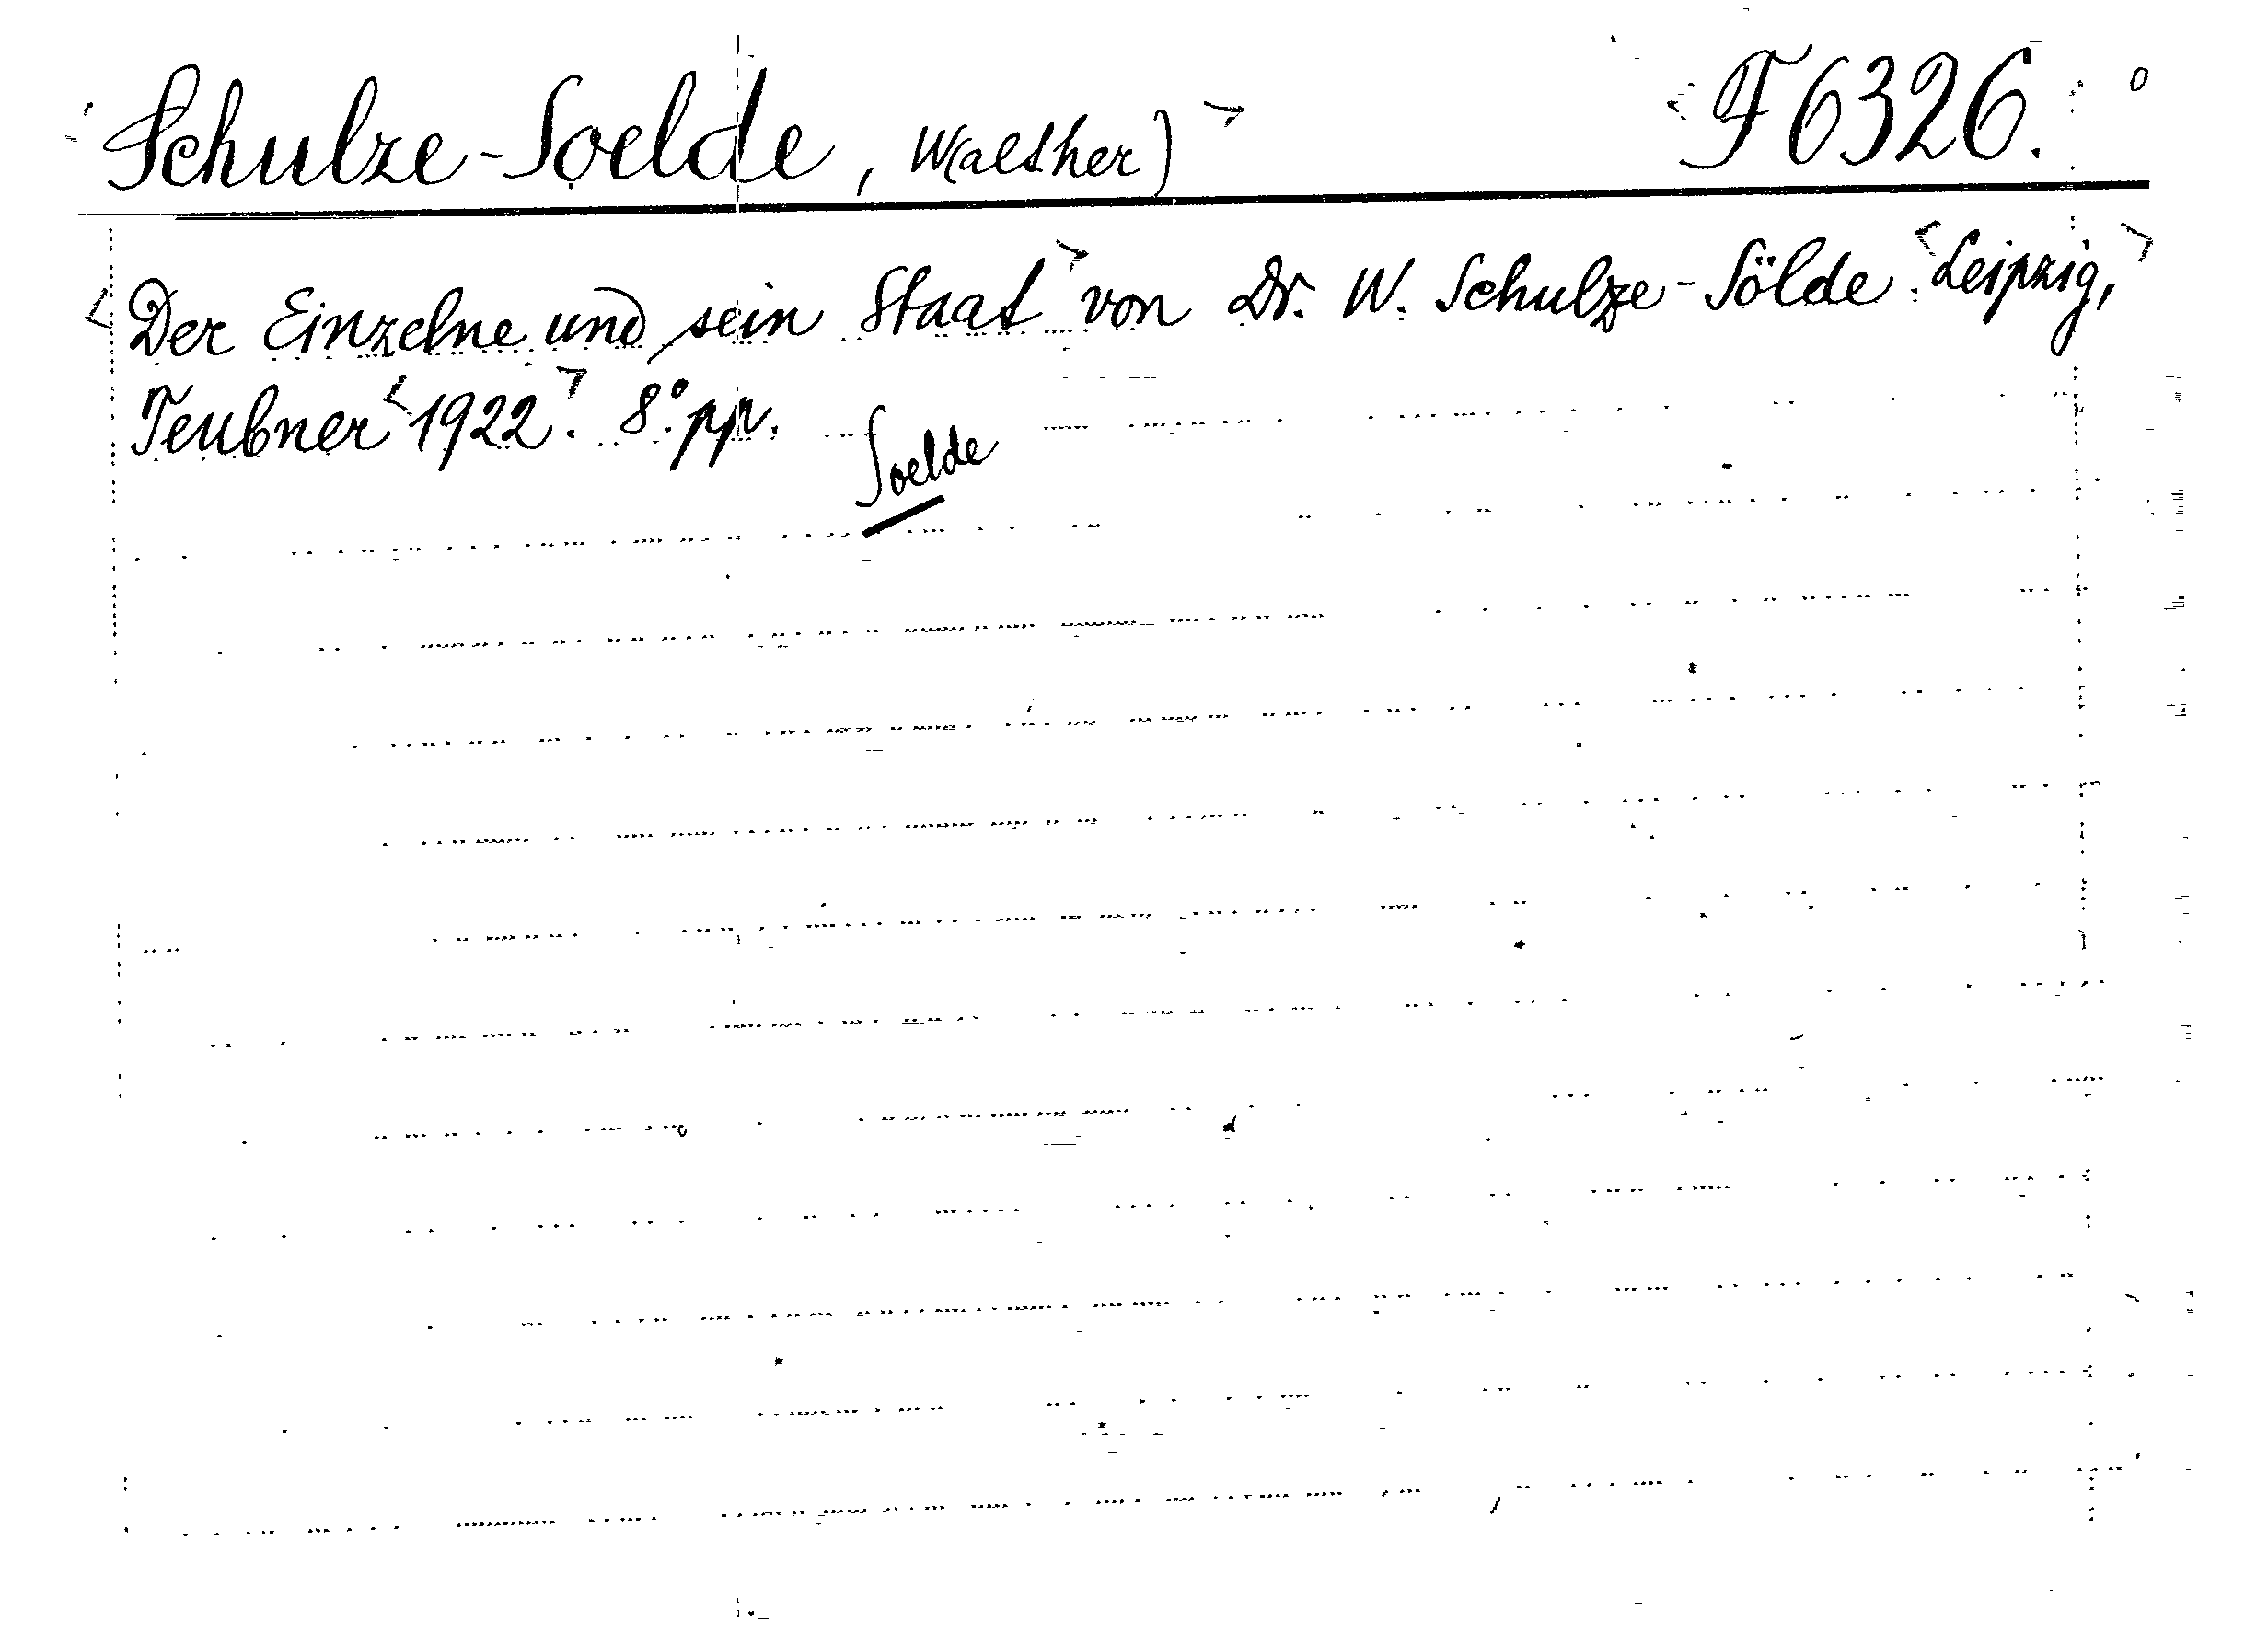 Schulze-Soelde, W(alther) F 6326.
Der Einzelne und sein Staat von Dr. W. Schulze-Sölde. Leipzig,
Teubner 1922. 8° pp.
Soelde